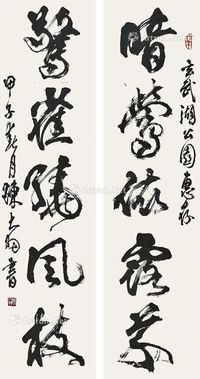 玄武湖公園惠存
暗螢依露草
驚雀繞風枝
甲子月陳大羽書